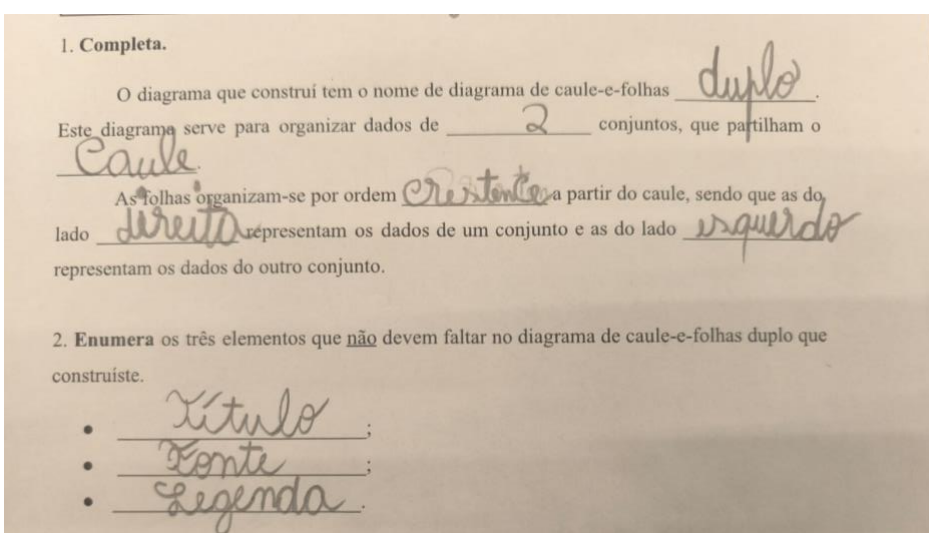 1. Completa.
O diagrama que construí tem o nome de diagrama de caule-e-folhas duplo.
Este diagrama serve para organizar dados de 2 conjuntos, que partilham o
Caule.
As folhas organizam-se por ordem crestente a partir do caule, sendo que as do
lado direito representam os dados de um conjunto e as do lado esquerdo
representam os dados do outro conjunto.
2. Enumera os três elementos que não devem faltar no diagrama de caule-e-folhas duplo que
construíste.
• Título;
• Fonte;
• Legenda.